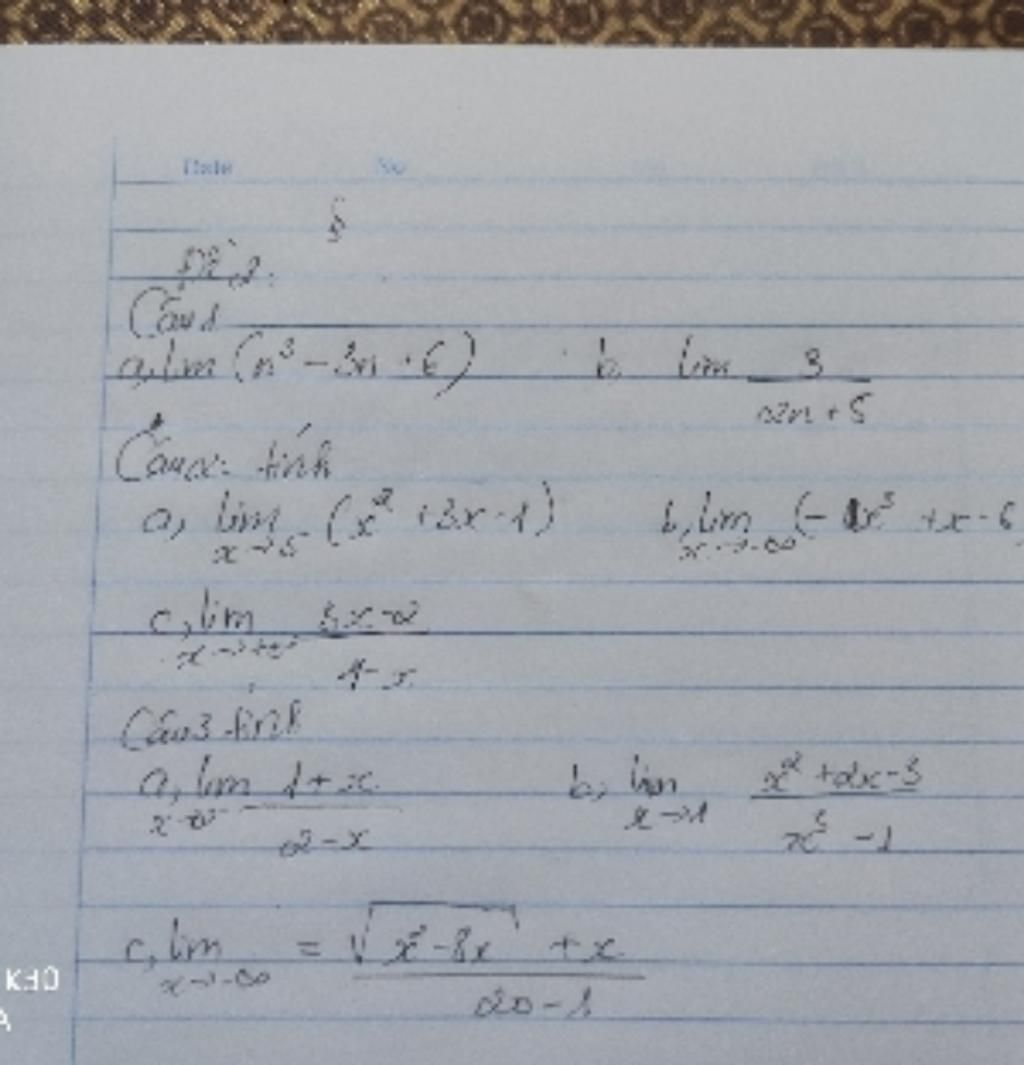 Date No
Đề 2:
Câu 1
a, lim (n³ - 3n + 6) b, lim 3/(2n + 5)
Câu 2: tính
a, lim x→5 (x² + 3x - 1) b, lim x→-∞ (- x³ + x - 6
c, lim x→+∞ (3x - 2)/(1 - x)
Câu 3 tính
a, lim x→2⁻ (1 + x)/(2 - x) b, lim x→1 (x² + 2x - 3)/(x³ - 1)
c, lim x→-∞ = (√(x² - 8x) + x)/
K30
A